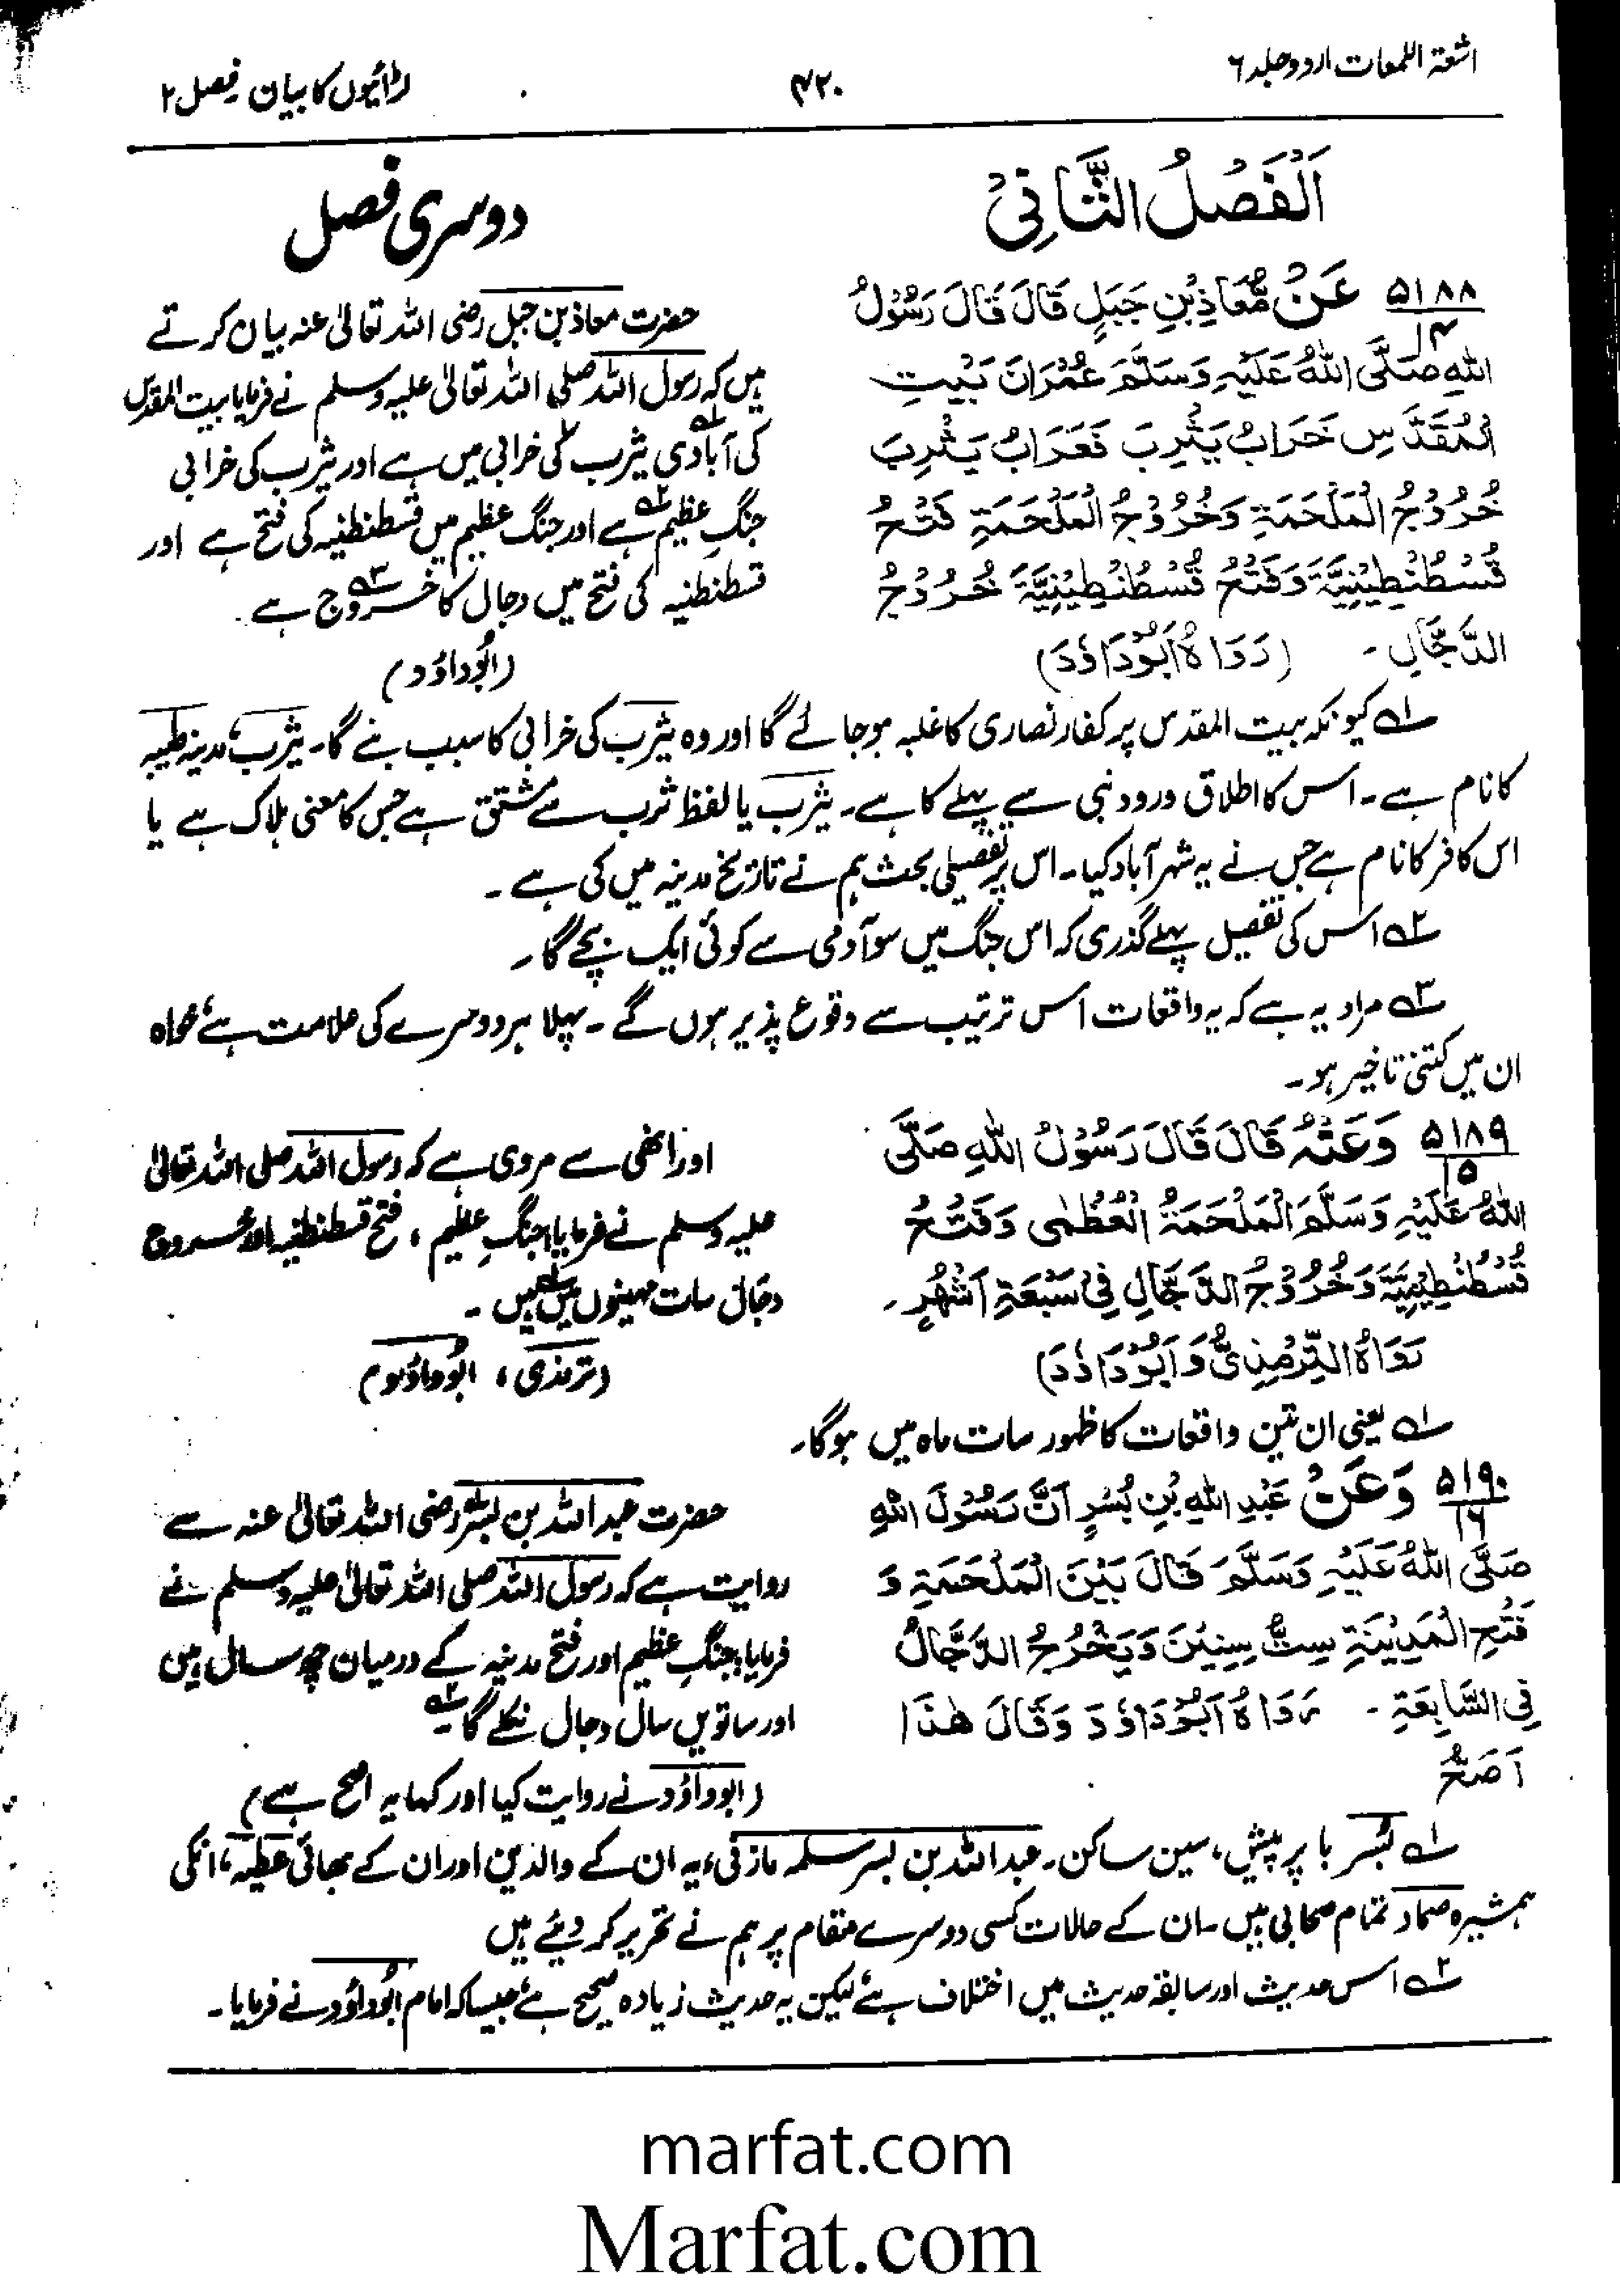 اشعۃ اللمعات اردو جلد ۶
۴۲۰
لڑائیوں کا بیان فصل ۲
اَلْفَصْلُ الثَّانِیْ
۵۱۸۸
۱۴
عَنْ مُّعَاذِ بْنِ جَبَلٍ قَالَ قَالَ رَسُوْلُ
اللّٰہِ صَلَّی اللّٰہُ عَلَیْہِ وَسَلَّمَ عُمْرَانَ بَیْتِ
الْمُقَدَّسِ خَرَابُ یَثْرِبَ فَخَرَابُ یَثْرِبَ
خُرُوْجُ الْمَلْحَمَۃِ وَخُرُوْجُ الْمَلْحَمَۃِ فَتْحُ
قُسْطُنْطِیْنِیَّۃَ وَفَتْحُ قُسْطُنْطِیْنِیَّۃَ خُرُوْجُ
الدَّجَّالِ۔ (رَوَاہُ اَبُوْدَاؤدَ)
دوسری فصل
حضرت معاذ بن جبل رضی اللہ تعالیٰ عنہ بیان کرتے
ہیں کہ رسول اللہ صلی اللہ تعالیٰ علیہ وسلم نے فرمایا بیت المقدس
کی آبادی ۱ یثرب کی خرابی میں ہے اور یثرب کی خرابی
جنگِ عظیم ۲ ہے اور جنگ عظیم میں قسطنطنیہ کی فتح ہے اور
قسطنطنیہ کی فتح میں دجال کا خروج ۳ ہے۔
(ابوداؤد)
۱ کیونکہ بیت المقدس پر کفار نصاری کا غلبہ ہو جائے گا اور وہ یثرب کی خرابی کا سبب بنے گا۔ یثرب، مدینہ طیبہ
کا نام ہے۔ اس کا اطلاق ورود نبی سے پہلے کا ہے۔ یثرب یا لفظ ثرب سے مشتق ہے جس کا معنی ہلاک ہے یا
اس کافر کا نام ہے جس نے یہ شہر آباد کیا۔ اس پر تفصیلی بحث ہم نے تاریخ مدینہ میں کی ہے۔
۲ اس کی تفصیل پہلے گذری کہ اس جنگ میں سو آدمی سے کوئی ایک بچے گا۔
۳ مراد یہ ہے کہ یہ واقعات اس ترتیب سے وقوع پذیر ہوں گے۔ پہلا ہر دوسرے کی علامت ہے خواہ
ان میں کتنی تاخیر ہو۔
۵۱۸۹
۱۵
وَعَنْہُ قَالَ قَالَ رَسُوْلُ اللّٰہِ صَلَّی
اللّٰہُ عَلَیْہِ وَسَلَّمَ الْمَلْحَمَۃُ الْعُظْمٰی وَفَتْحُ
قُسْطُنْطِیْنِیَّۃَ وَخُرُوْجُ الدَّجَّالِ فِیْ سَبْعَۃِ اَشْہُرٍ۔
رَوَاہُ التِّرْمِذِیُّ وَاَبُوْدَاؤدَ)
اور انھی سے مروی ہے کہ رسول اللہ صلی اللہ تعالیٰ
علیہ وسلم نے فرمایا جنگِ عظیم، فتح قسطنطنیہ اور خروج
دجال سات مہینوں میں ہیں ۱۔
(ترمذی، ابوداؤد)
۱ یعنی ان تین واقعات کا ظہور سات ماہ میں ہوگا۔
۵۱۹۰
۱۶
وَعَنْ عَبْدِ اللّٰہِ بْنِ بُسْرٍ اَنَّ رَسُوْلَ اللّٰہِ
صَلَّی اللّٰہُ عَلَیْہِ وَسَلَّمَ قَالَ بَیْنَ الْمَلْحَمَۃِ وَ
فَتْحِ الْمَدِیْنَۃِ سِتُّ سِنِیْنَ وَیَخْرُجُ الدَّجَّالُ
فِی السَّابِعَۃِ۔ رَوَاہُ اَبُوْدَاؤدَ وَقَالَ ھٰذَا
اَصَحُّ
حضرت عبداللہ بن بسر ۱ رضی اللہ تعالیٰ عنہ سے
روایت ہے کہ رسول اللہ صلی اللہ تعالیٰ علیہ وسلم نے
فرمایا، جنگِ عظیم اور فتح مدینہ کے درمیان چھ سال ہیں
اور ساتویں سال دجال نکلے گا ۲
(ابوداؤد نے روایت کیا اور کہا یہ اصح ہے)
۱ بُسر با پر پیش، سین ساکن۔ عبداللہ بن بسر سلمہ مازنی، یہ ان کے والدین اور ان کے بھائی عطیہ، انکی
ہمشیرہ صماد تمام صحابی ہیں۔ ان کے حالات کسی دوسرے مقام پر ہم نے تحریر کر دیئے ہیں
۲ اس حدیث اور سابقہ حدیث میں اختلاف ہے لیکن یہ حدیث زیادہ صحیح ہے جیسا کہ امام ابوداؤد نے فرمایا۔
marfat.com
Marfat.com